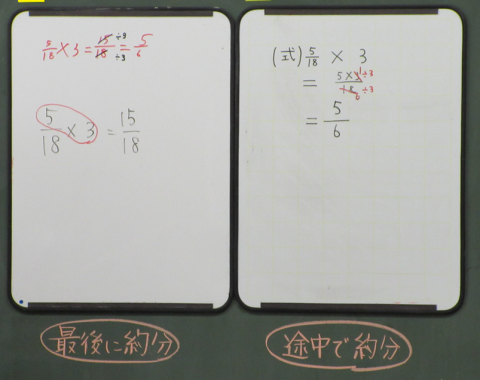 5/18 × 3 = 15/18 ÷3/÷3 = 5/6
5/18 × 3 = 15/18
最後に約分
(式) 5/18 × 3
= 5×3/18 1 ÷3 6 ÷3
= 5/6
途中で約分